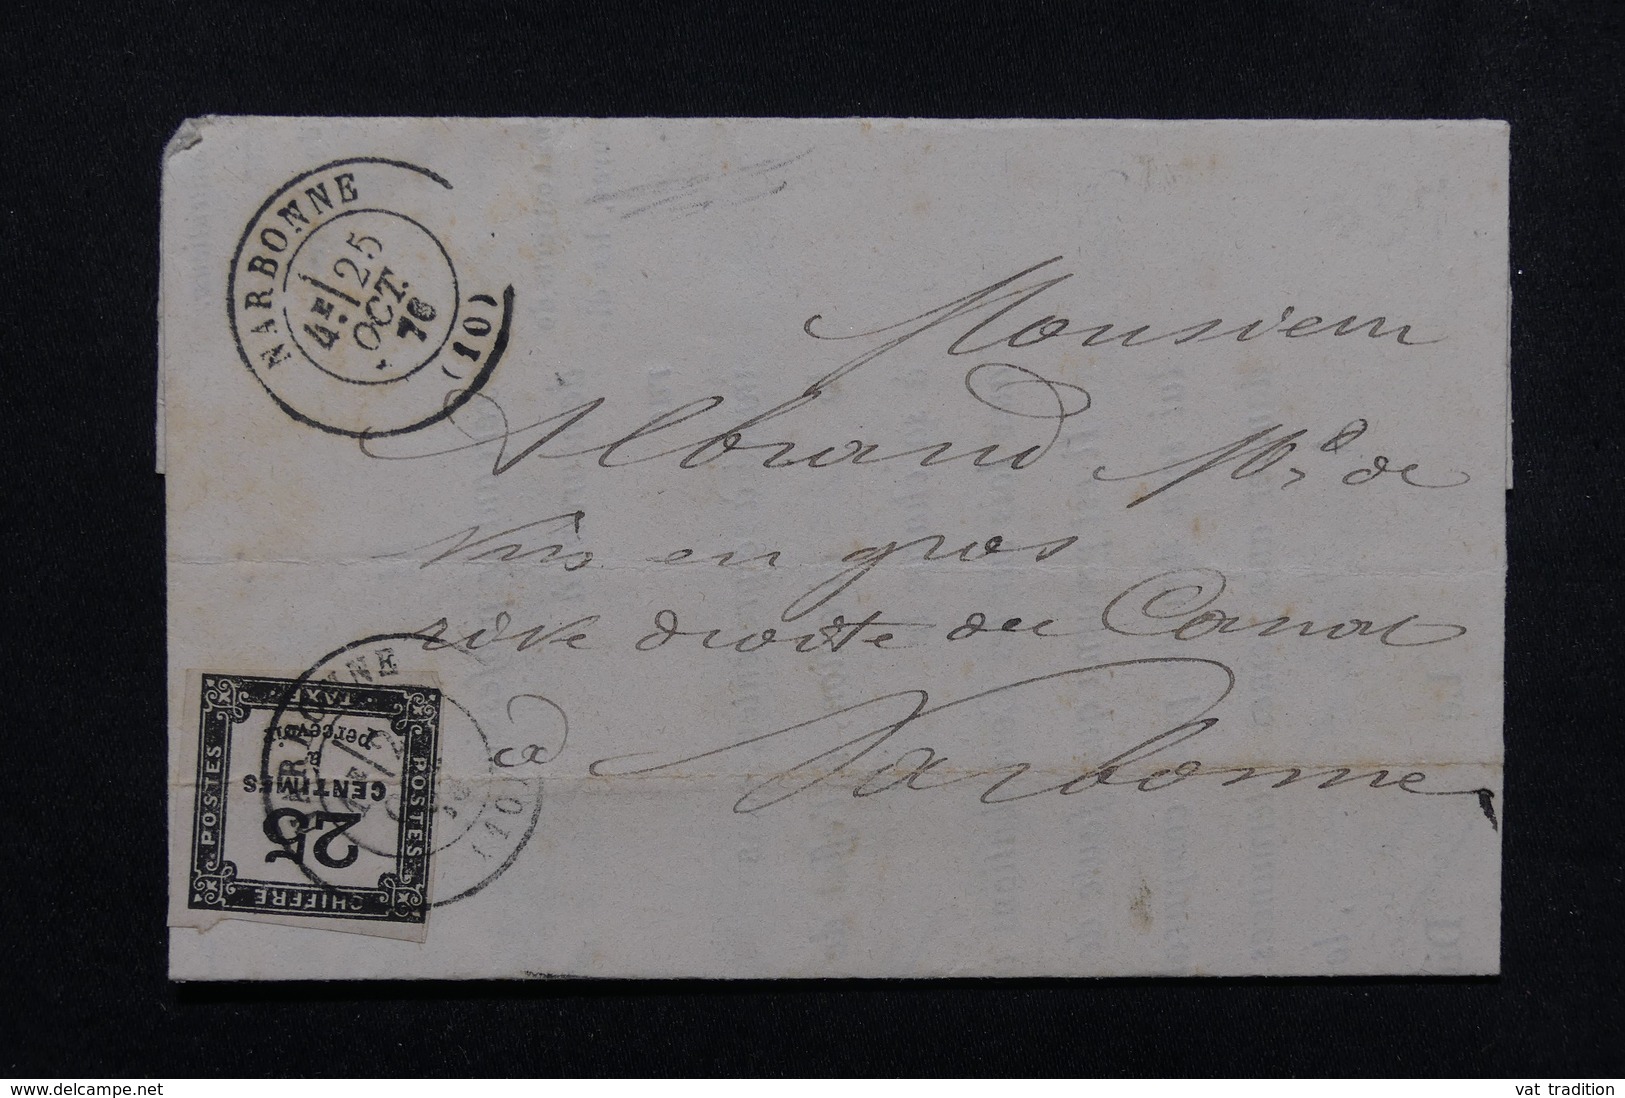 NARBONNE
4E/ 25
OCT.
76
(10)
Monsieur
Albrand Md de
Vins en gros
rive droite du Canal
à Narbonne
NARBONNE
(10)
TAXE
percevoir
à
CENTIMES
25
POSTES
POSTES
CHIFFRE
www.delcampe.net
vat tradition